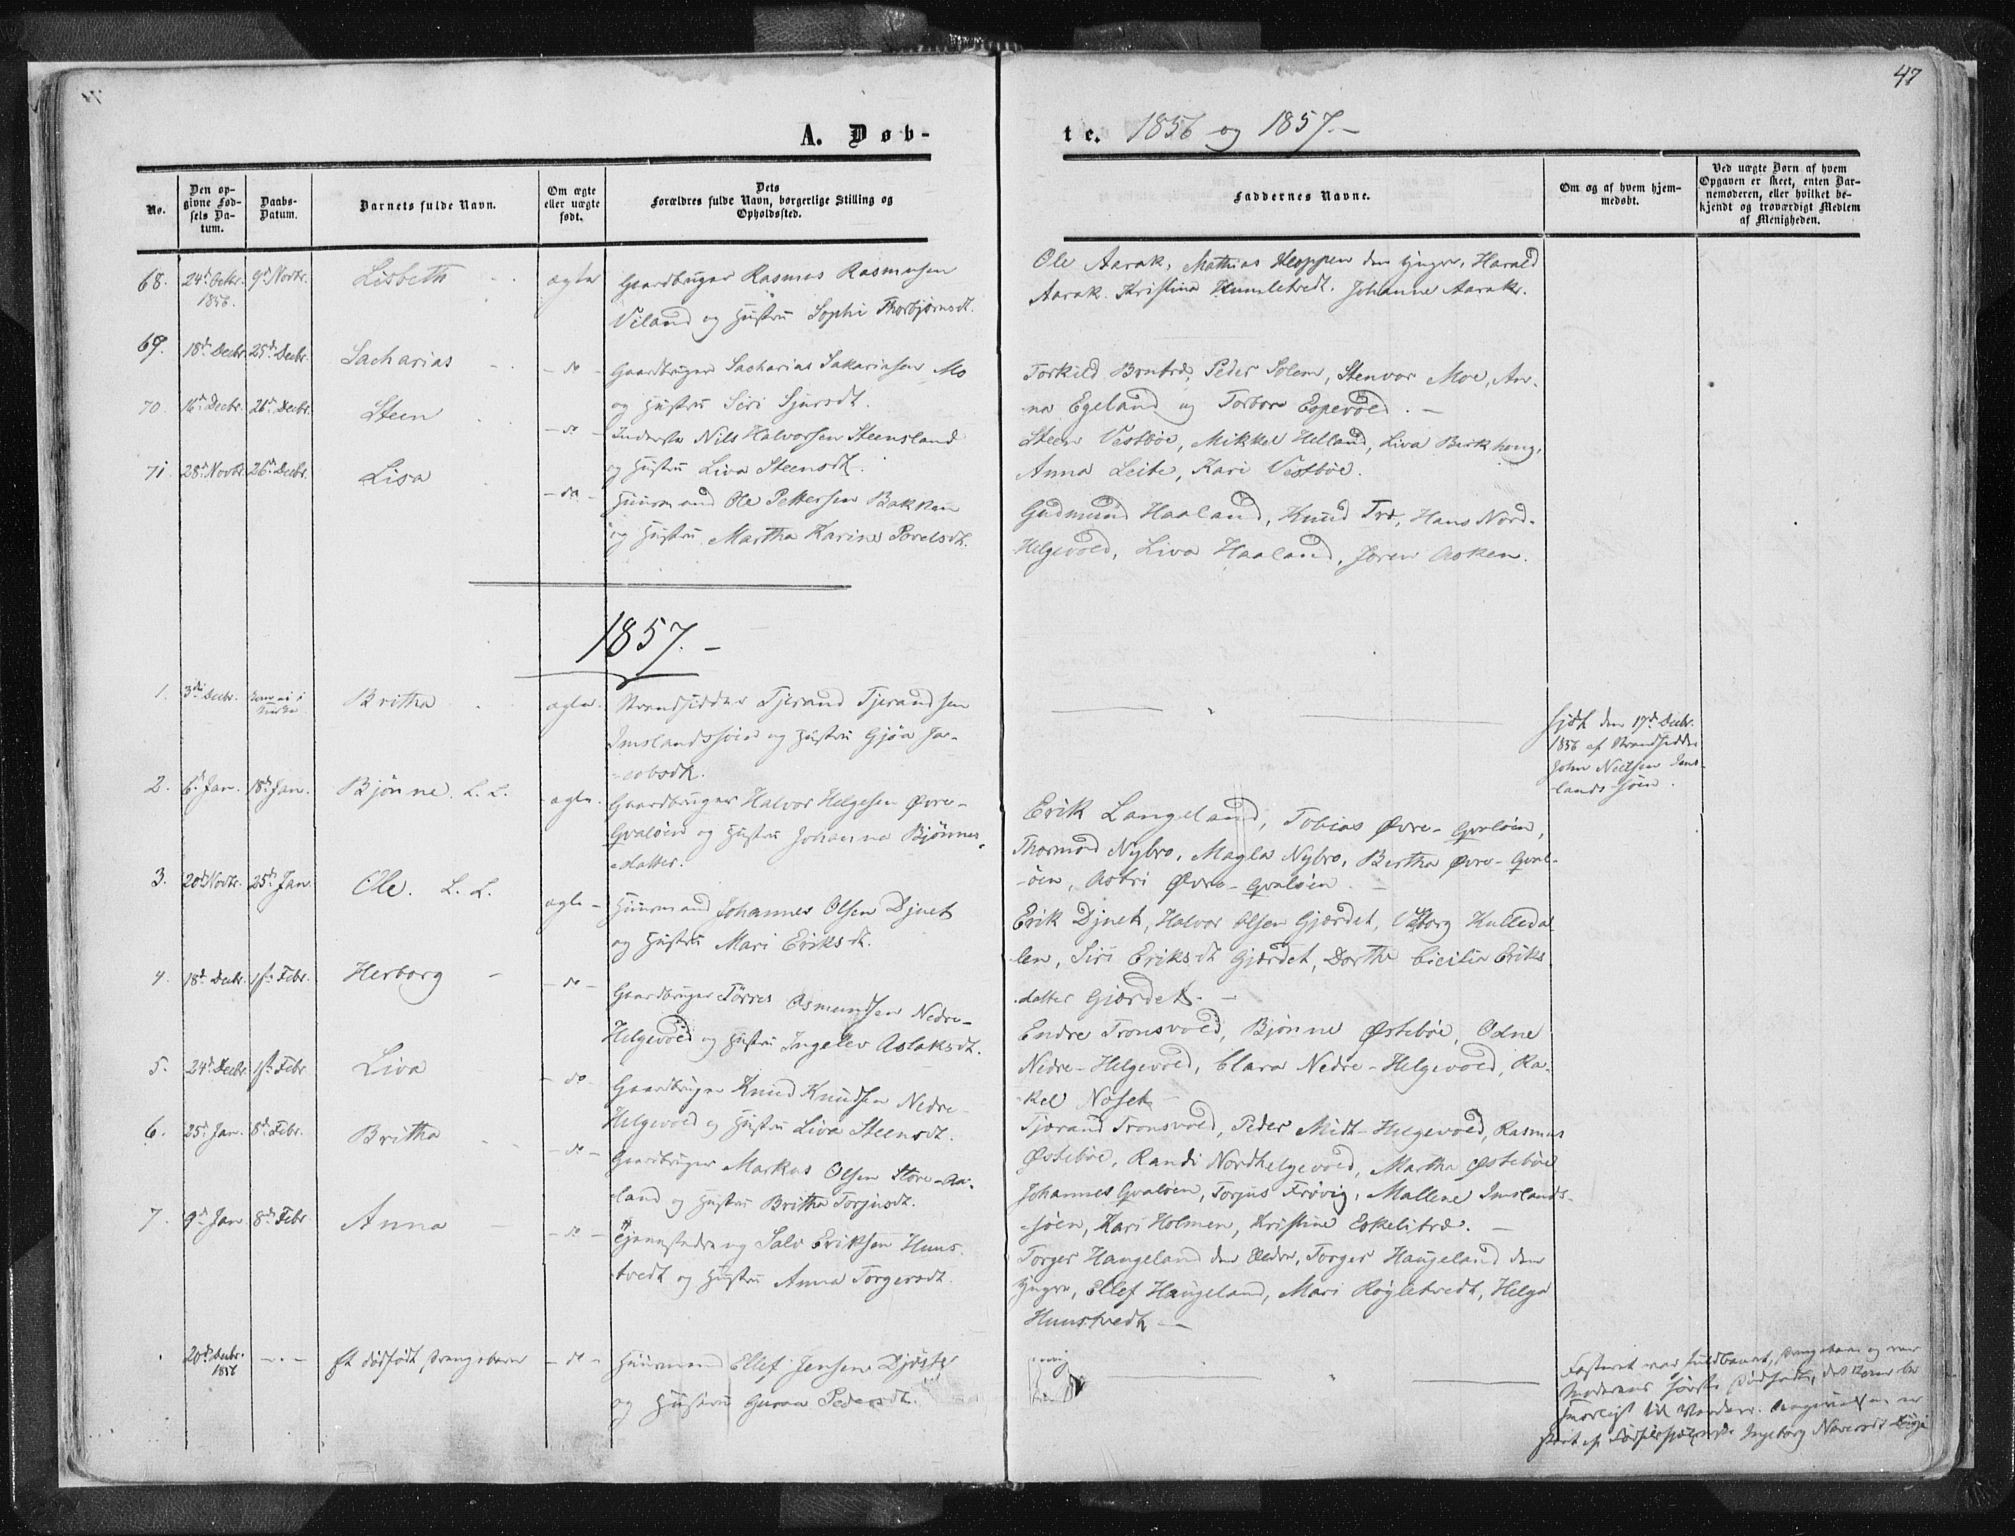 47
A. Døb-
te. 1856 og 1857.-
No.
Den op-
givne Fød-
sels Da-
tum.
Daabs-
Datum.
Barnets fulde Navn.
Om ægte
eller uægte
født.
Dets
Forældres fulde Navn, borgerlige Stilling og
Opholdssted.
Faddernes Navne.
Om og af hvem hjem-
medøbt.
Ved uægte Børn af hvem
Opgaven er skeet, enten Bar-
nemoderen, eller hvilket be-
kjendt og troværdigt Medlem
af Menigheden.
68. 24d Octbr. 9d Novbr. Lisbeth ægte Gaardbruger Rasmus Rasmusen
1856.
Viland og Hustru Sophi Thorbjørnsdt.
Ole Aarak, Mathias Kloppen den yngre, Harald
Aarak. Kristina Humletvedt. Johanne Aarak.
69. 18d Decbr. 25d Decbr. Sacharias - do - Gaardbruger Sacharias Sakariasen Mo
og Hustru Siri Sjursdt.
Torkild Brutræ, Peder Solem, Stenvor Moe, An-
na Egeland og Torbor Espevold. -
70. 16d Decbr. 26d Decbr. Steen - do - Inderste Nils Halvorsen Steensland
og Hustru Liva Steensdt.
Steen Vestbøe, Mikkel Helland, Liva Birkhoug,
Anna Leite, Kari Vestbøe.
71. 28d Novbr. 26d Decbr. Lisa - do - Huusmand Ole Pettersen Bakken
og Hustru Martha Karine Povelsdt.
Gudmund Haaland, Knud Træ, Hans Nord-
Helgevold, Liva Haaland, Joren Asken.
1857. -
1. 3die Decbr. Kom ei i Kirke Britha ægte. Strandsidder Tjerand Tjerandsen
Imslandssøen og Hustru Gjøa Ja-
cobsdt.
hjdt den 17d Decbr.
1856 af Strandsidder
John Nielsen Ims-
lands-søen.
2. 6d Jan. 18d Jan. Bjønne. L. L. ægte. Gaardbruger Halvor Helgesen Øvre-
Qvaløen og Hustru Johanna Bjønnes-
datter.
Erik Langeland, Tobias Øvre-Qvaløen,
Thormod Nybro, Magla Nybro, Bertha Øvre-Qval-
øen, Astri Øvre-Qvaløen -
3. 20d Novbr. 25d Jan. Ole. L. L. ægte - Huusmand Johannes Olsen Djuet
og Hustru Mari Eriksdt.
Erik Djuet, Halvor Olsen Gjærdet, Viborg Hulleda-
len, Siri Eriksdt Gjærdet, Dorthe Cicilie Eriks
datter Gjærdet. -
4. 18d Decbr. 1ste Febr. Herborg - - do - Gaardbruger Tørres Osmundsen Nedre-
Helgevold og Hustru Ingelev Aslaksdt.
Endre Tronsvold, Bjønne Østebøe, Odne
Nedre-Helgevold, Clara Nedre-Helgevold, Ra-
kel Næset -
5. 24d Decbr. 1ste Febr. Liva - do - Gaardbruger Knud Knudsen Nedre-
Helgevold og Hustru Liva Steensdt.
Tjærand Tronsvold, Peder Midt-Helgevold, Rasmus
Østebøe, Randi Nordhelgevold, Martha Østebøe
6. 25d Jan. 8d Febr. Britha - do - Gaardbruger Markus Olsen Store-Aa-
land og Hustru Britha Torjusdt.
Johannes Qvaløen, Torjus Frøvig, Mallene Imslands-
søen, Kari Holmen, Kristine Eskelitræ. -
7. 9d Jan 8d Febr. Anna - do - Tjenestedreng Salve Eriksen Huns-
tvedt og Hustru Anna Torgersdt.
Torger Haugeland den Ældre, Torger Haugeland den
yngre, Ellef Haugeland, Mari Røgletvedt, Helga
Hunstvedt -
20d Decbr. 1856 Et dødfødt Drengebarn - do - Huusmand Ellef Jensen
og Hustru Guroe Pedersdt.
Fosteret var fuldbaaret, Drengebarn og var
Moderens første